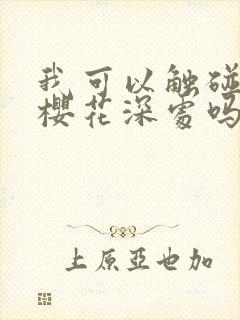 我可以触碰
樱花深处吗
上原亞也加